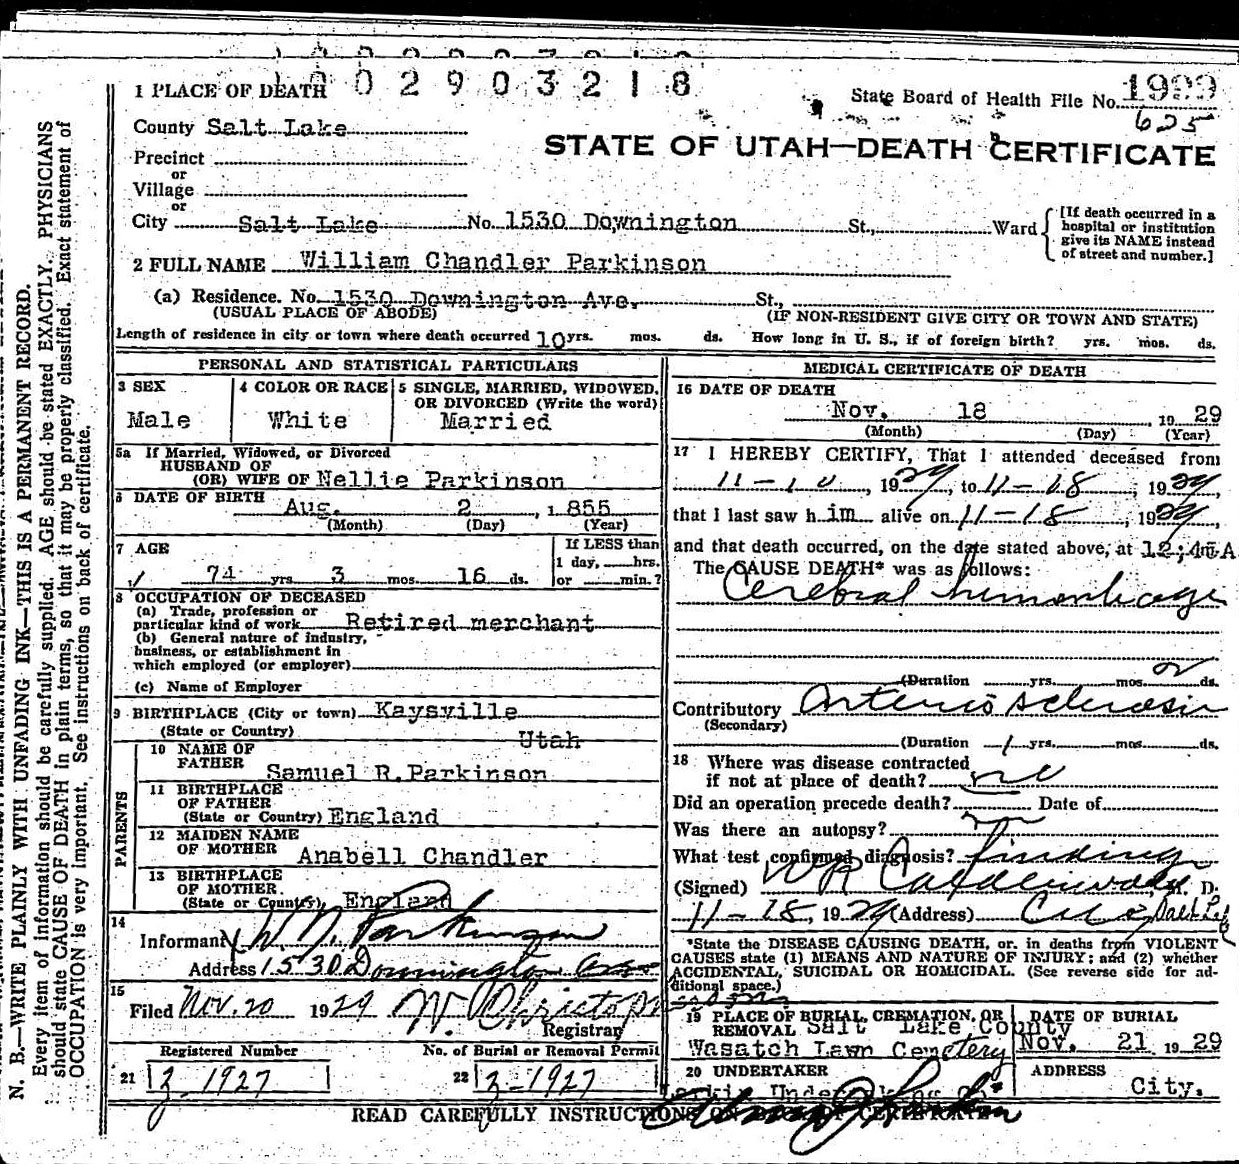 1002903218
1 PLACE OF DEATH
State Board of Health File No. 1999
625
County Salt Lake
STATE OF UTAH—DEATH CERTIFICATE
Precinct
or
Village
or
City Salt Lake No. 1530 Downington St., Ward
[If death occurred in a
hospital or institution
give its NAME instead
of street and number.]
2 FULL NAME William Chandler Parkinson
(a) Residence. No. 1530 Downington Ave. St.,
(USUAL PLACE OF ABODE) (IF NON-RESIDENT GIVE CITY OR TOWN AND STATE)
Length of residence in city or town where death occurred 10 yrs. mos. ds. How long in U. S., if of foreign birth? yrs. mos. ds.
PERSONAL AND STATISTICAL PARTICULARS
3 SEX
Male
4 COLOR OR RACE
White
5 SINGLE, MARRIED, WIDOWED,
OR DIVORCED (Write the word)
Married
5a If Married, Widowed, or Divorced
HUSBAND OF
(OR) WIFE OF Nellie Parkinson
6 DATE OF BIRTH
Aug. 2, 1855
(Month) (Day) (Year)
7 AGE
74 yrs. 3 mos. 16 ds.
If LESS than
1 day, hrs.
or min.?
8 OCCUPATION OF DECEASED
(a) Trade, profession or
particular kind of work Retired merchant
(b) General nature of industry,
business, or establishment in
which employed (or employer)
(c) Name of Employer
9 BIRTHPLACE (City or town) Kaysville
(State or Country) Utah
PARENTS
10 NAME OF
FATHER
Samuel R. Parkinson
11 BIRTHPLACE
OF FATHER
(State or Country) England
12 MAIDEN NAME
OF MOTHER Anabell Chandler
13 BIRTHPLACE
OF MOTHER.
(State or Country) England
14
Informant W. N. Parkinson
Address 1530 Downington Ave
15
Filed Nov. 20 1929
Registrar
Registered Number
21 Z-1927
No. of Burial or Removal Permit
22 Z-1927
MEDICAL CERTIFICATE OF DEATH
16 DATE OF DEATH
Nov. 18 1929
(Month) (Day) (Year)
17 I HEREBY CERTIFY, That I attended deceased from
11-10, 1929, to 11-18, 1929,
that I last saw him alive on 11-18, 1929,
and that death occurred, on the date stated above, at 12:45 A
The CAUSE DEATH* was as follows:
Cerebral hemorrhage
(Duration yrs. mos. ds.
Contributory Arterio sclerosis
(Secondary)
(Duration 1 yrs. mos. ds.
18 Where was disease contracted
if not at place of death? no
Did an operation precede death? Date of
Was there an autopsy? no
What test confirmed diagnosis? findings
(Signed) WR Calderwood M. D.
11-18, 1929 (Address)
*State the DISEASE CAUSING DEATH, or, in deaths from VIOLENT
CAUSES state (1) MEANS AND NATURE OF INJURY; and (2) whether
ACCIDENTAL, SUICIDAL OR HOMICIDAL. (See reverse side for ad-
ditional space.)
19 PLACE OF BURIAL, CREMATION, OR
REMOVAL Salt Lake County
Wasatch Lawn Cemetery
DATE OF BURIAL
Nov. 21 1929
20 UNDERTAKER
ADDRESS
City.
READ CAREFULLY INSTRUCTIONS ON
N. B.—WRITE PLAINLY WITH UNFADING INK—THIS IS A PERMANENT RECORD.
Every item of information should be carefully supplied. AGE should be stated EXACTLY. PHYSICIANS
should state CAUSE OF DEATH in plain terms, so that it may be properly classified. Exact statement of
OCCUPATION is very important. See instructions on back of certificate.